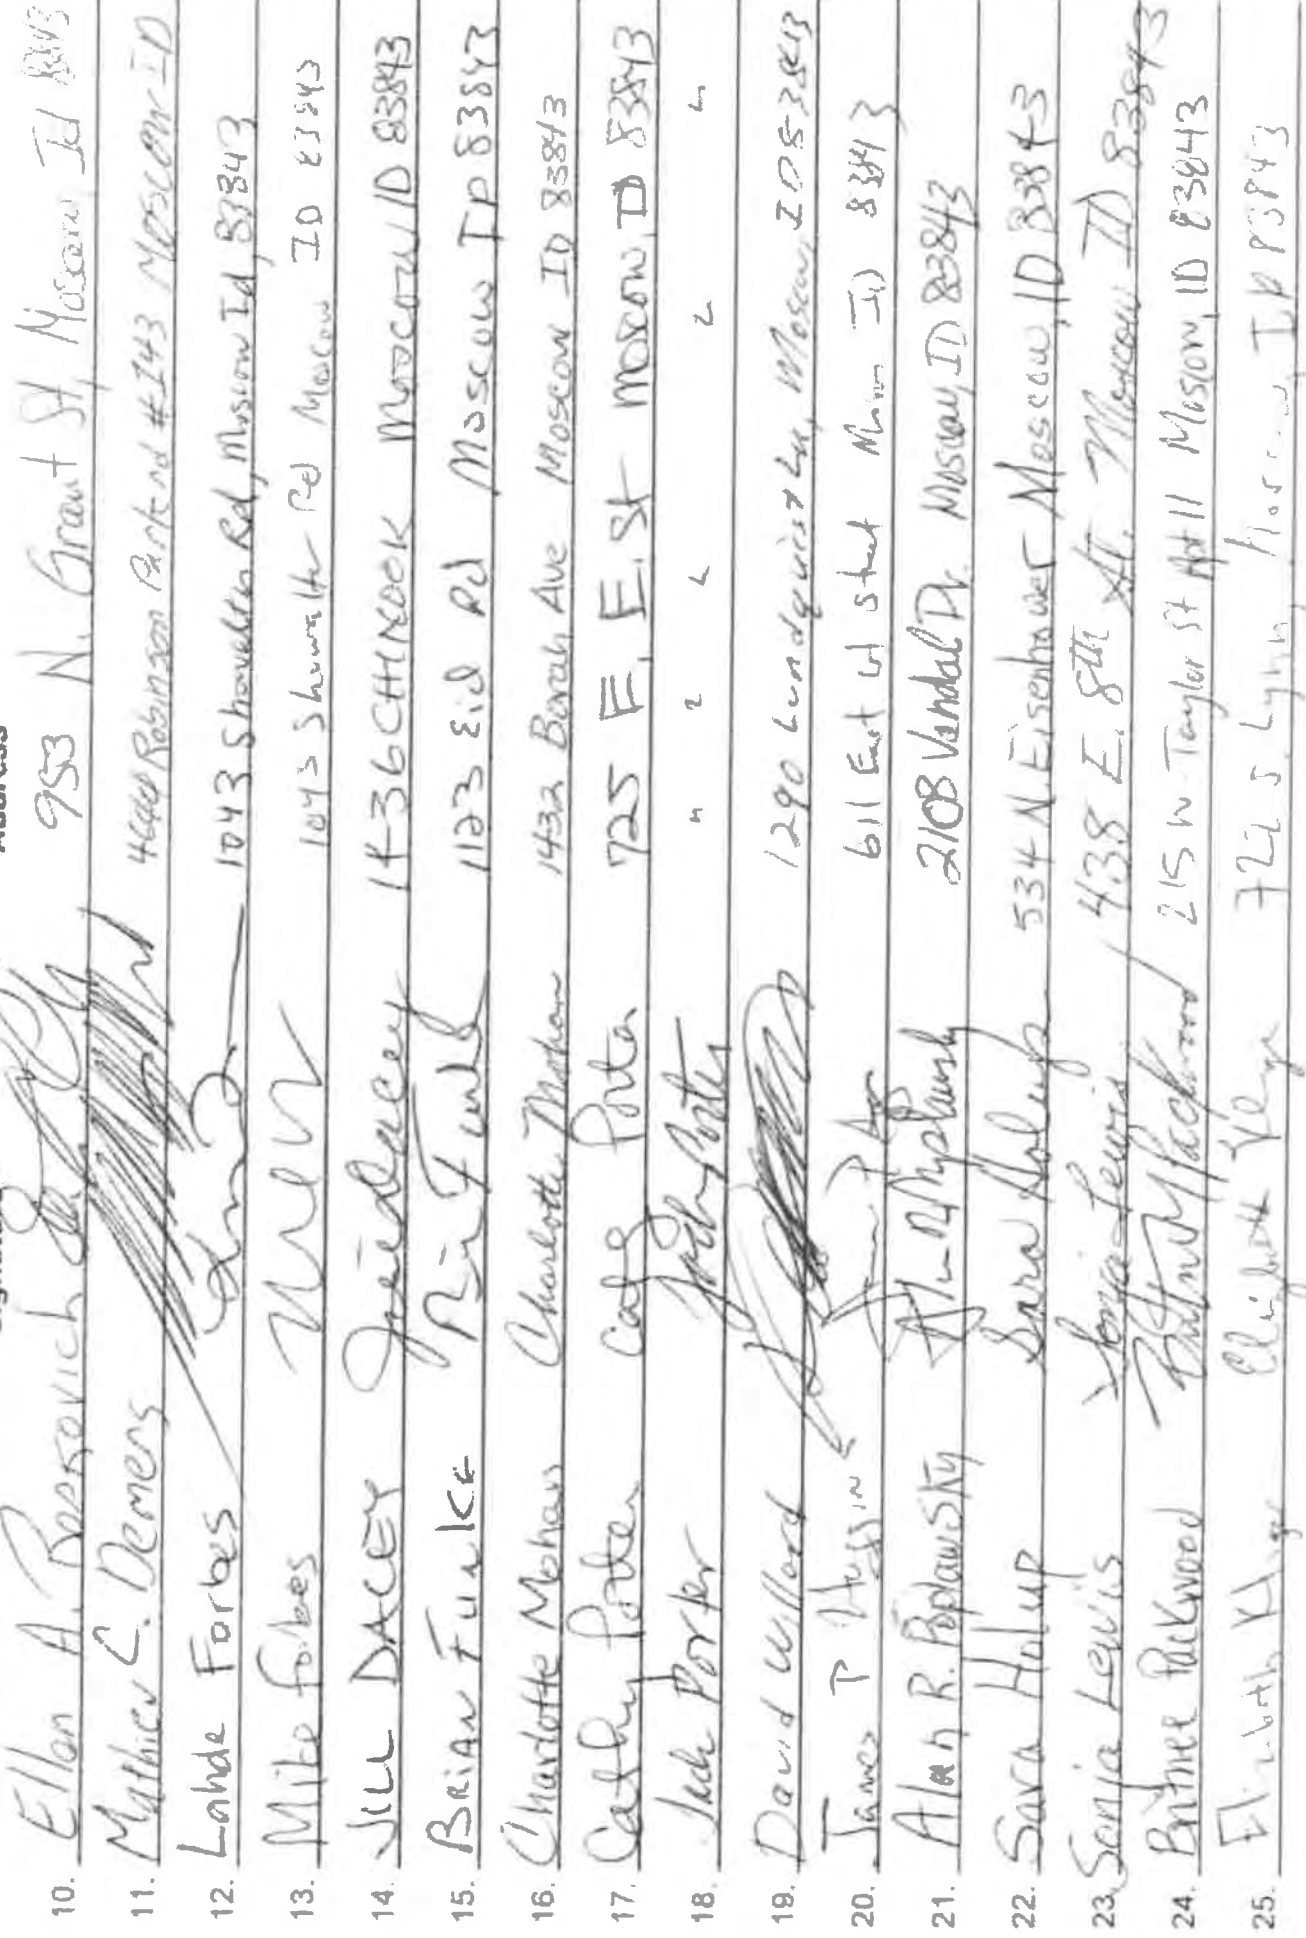 Address
10. Ellen A. Roskovich 953 N. Grant St, Moscow Id 83843
11. Mathieu C. Demers Robinson Park rd #I43 Moscow ID
12. Lahde Forbes 1043 Showalter Rd, Moscow Id, 83843
13. Mike Forbes 1043 Showalter Rd Moscow ID 83843
14. JILL DACEY Jill Dacey 1436 CHINOOK Moscow ID 83843
15. BRIAN FUNKE 1123 Eid Rd Moscow ID 83843
16. Charlotte Mohan Charlotte Mohan 1432 Borah Ave Moscow ID 83843
17. Cathy Porter Cathy Porter 725 E. E. St Moscow, ID 83843
18. Jack Porter Jack Porter
19. David Willard 1290 Lundquist Ln, Moscow, ID 83843
20. James P 611 East St 83843
21. Alan R. Poplawsky 2108 Vandal Dr. Moscow, ID 83843
22. Sara Holup Sara Holup 534 N Eisenhower Moscow, ID 83843
23. Sonja Lewis Sonja Lewis 438 E. 8th St. Moscow ID 83843
24. Packwood Packwood 215 W Taylor St Apt 11 Moscow, ID 83843
25. 722 S. Lynn Moscow, ID 83843